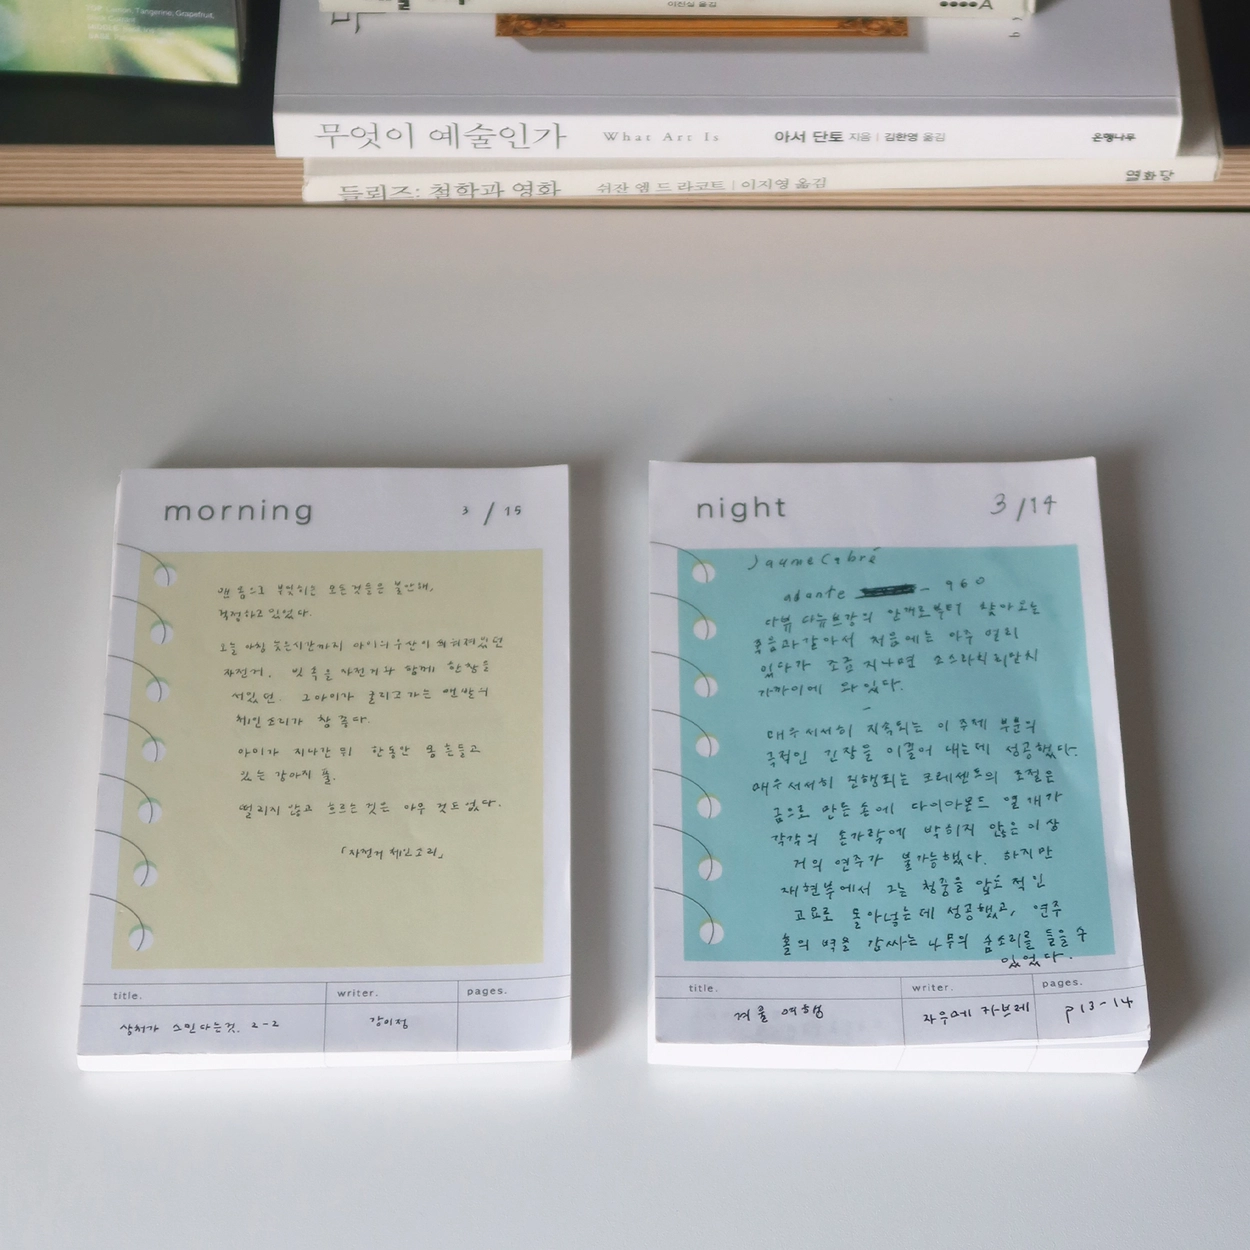 Tangerine, Grapefruit,
이진실 옮김
A
무엇이 예술인가 What Art Is 아서 단토 지음 | 김한영 옮김 은행나무
들뢰즈: 철학과 영화 쉬잔 엠 드 라코트 | 이지영 옮김 열화당
morning 3/15
맨 몸으로 부딪히는 모든것들은 불안해,
걱정하고 있었다.
오늘 아침 늦은시간까지 아이의 우산이 씌워져있던
자전거. 빗속을 자전거와 함께 한참을
서있던. 그아이가 굴리고가는 맨발의
체인소리가 참 좋다.
아이가 지나간 뒤 한동안 몸 흔들고
있는 강아지 풀.
떨리지 않고 흐르는 것은 아무 것도 없다.
「자전거 체인소리」
title. writer. pages.
상처가 스민다는것. 2-2 강미정
night 3/14
Jaume Cabré
adante - 960
다뷰 다뉴브강의 안개로부터 찾아오는
죽음과 같아서 처음에는 아주 멀리
있다가 조금 지나면 소스라치리만치
가까이에 와 있다.
매우 서서히 지속되는 이 주제 부분의
극적인 긴장을 이끌어 내는데 성공했다.
매우 서서히 진행되는 크레센도의 조절은
금으로 만든 손에 다이아몬드 열 개가
각각의 손가락에 박히지 않은 이상
거의 연주가 불가능했다. 하지만
재현부에서 그는 청중을 압도적인
고요로 몰아넣는데 성공했고, 연주
홀의 벽을 감싸는 나무의 숨소리를 들을 수
있었다.
title. writer. pages.
겨울 여행 자우메 카브레 p13-14